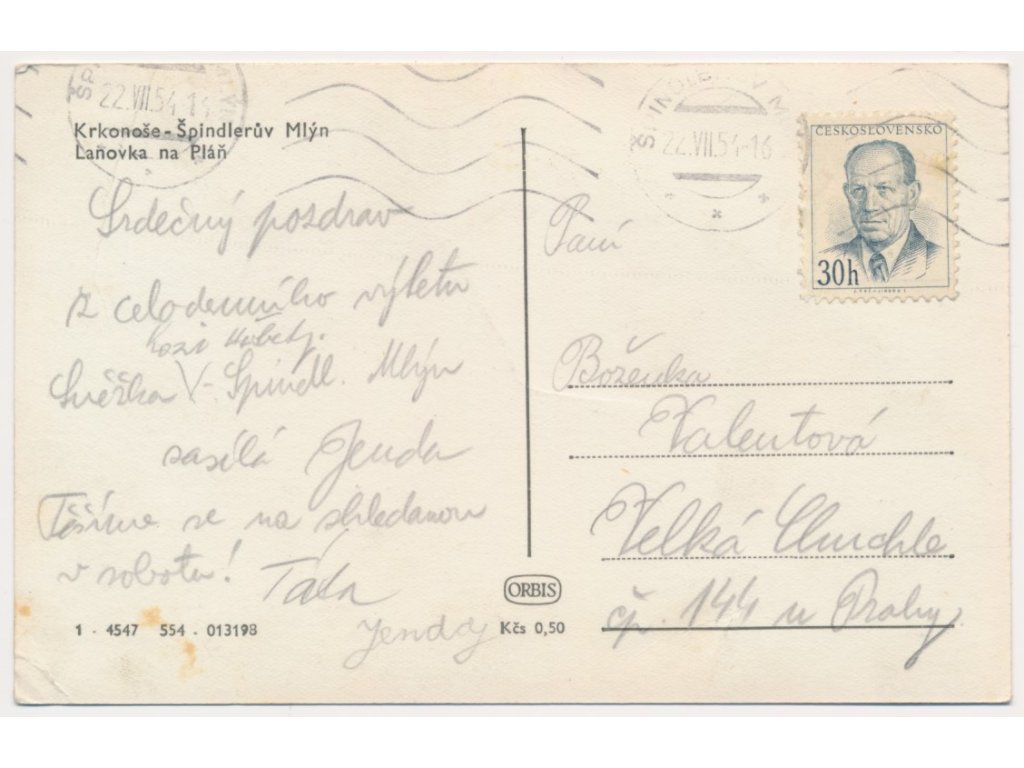 22.VII.54-1
Krkonoše-Špindlerův Mlýn
Lanovka na Pláň
Srdečný pozdrav
z celodenního výletu
Kozí hřbety.
Sněžka V- Spindl. Mlýn
sasílá Jenda
Těšíme se na shledanou
v sobotu! Táta
Jendy
1 - 4547 554 - 013198
ORBIS
Kčs 0,50
22.VII.54-16
ČESKOSLOVENSKO
30h
Paní
Boženka
Valentová
Velká Chuchle
čp. 144 u Prahy